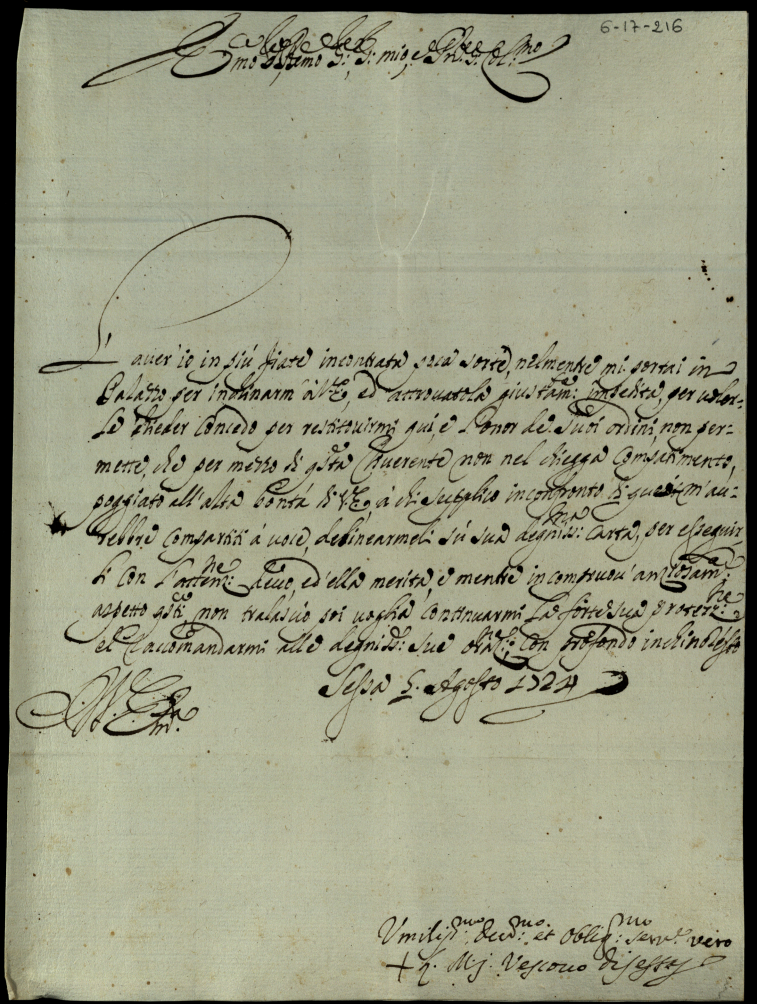 6-17-216
Em̃o e Rm̃o S.r S.r mio, e Pñe Col.mo
L'auer' io in più fiate incontrata poca sorte, nel mentre mi portai in
Palazzo per inclinarm' à V.E., ed attrouatola giustam.te impedita, per voler-
le chieder Concedo per restituirmi quì, e l'onor de Suoi ordini, non per-
mette, che per mezzo di q̃sta riuerente non nel chiegga Compatimento,
poggiato all'alta bontà di V.E., à chi supplico in confronto di m'au-
rebbe compartiti à voce, delinearmeli sù sua degniss.ma Carta, per esseguir-
li con l'atten.ne deuo, ed' ella merita, e mentre
aspetto q̃sti, non tralascio poi voglia continuarmi la forte sua protez.ne
el raccomandarmi alle degniss.e sue oraz.i, con profondo inchino resto
Di V. E. Sessa 5. Agosto 1724
Vmiliss.mo Deu.mo et Oblig.mo Seru.re vero
+ Vescouo di Sessa